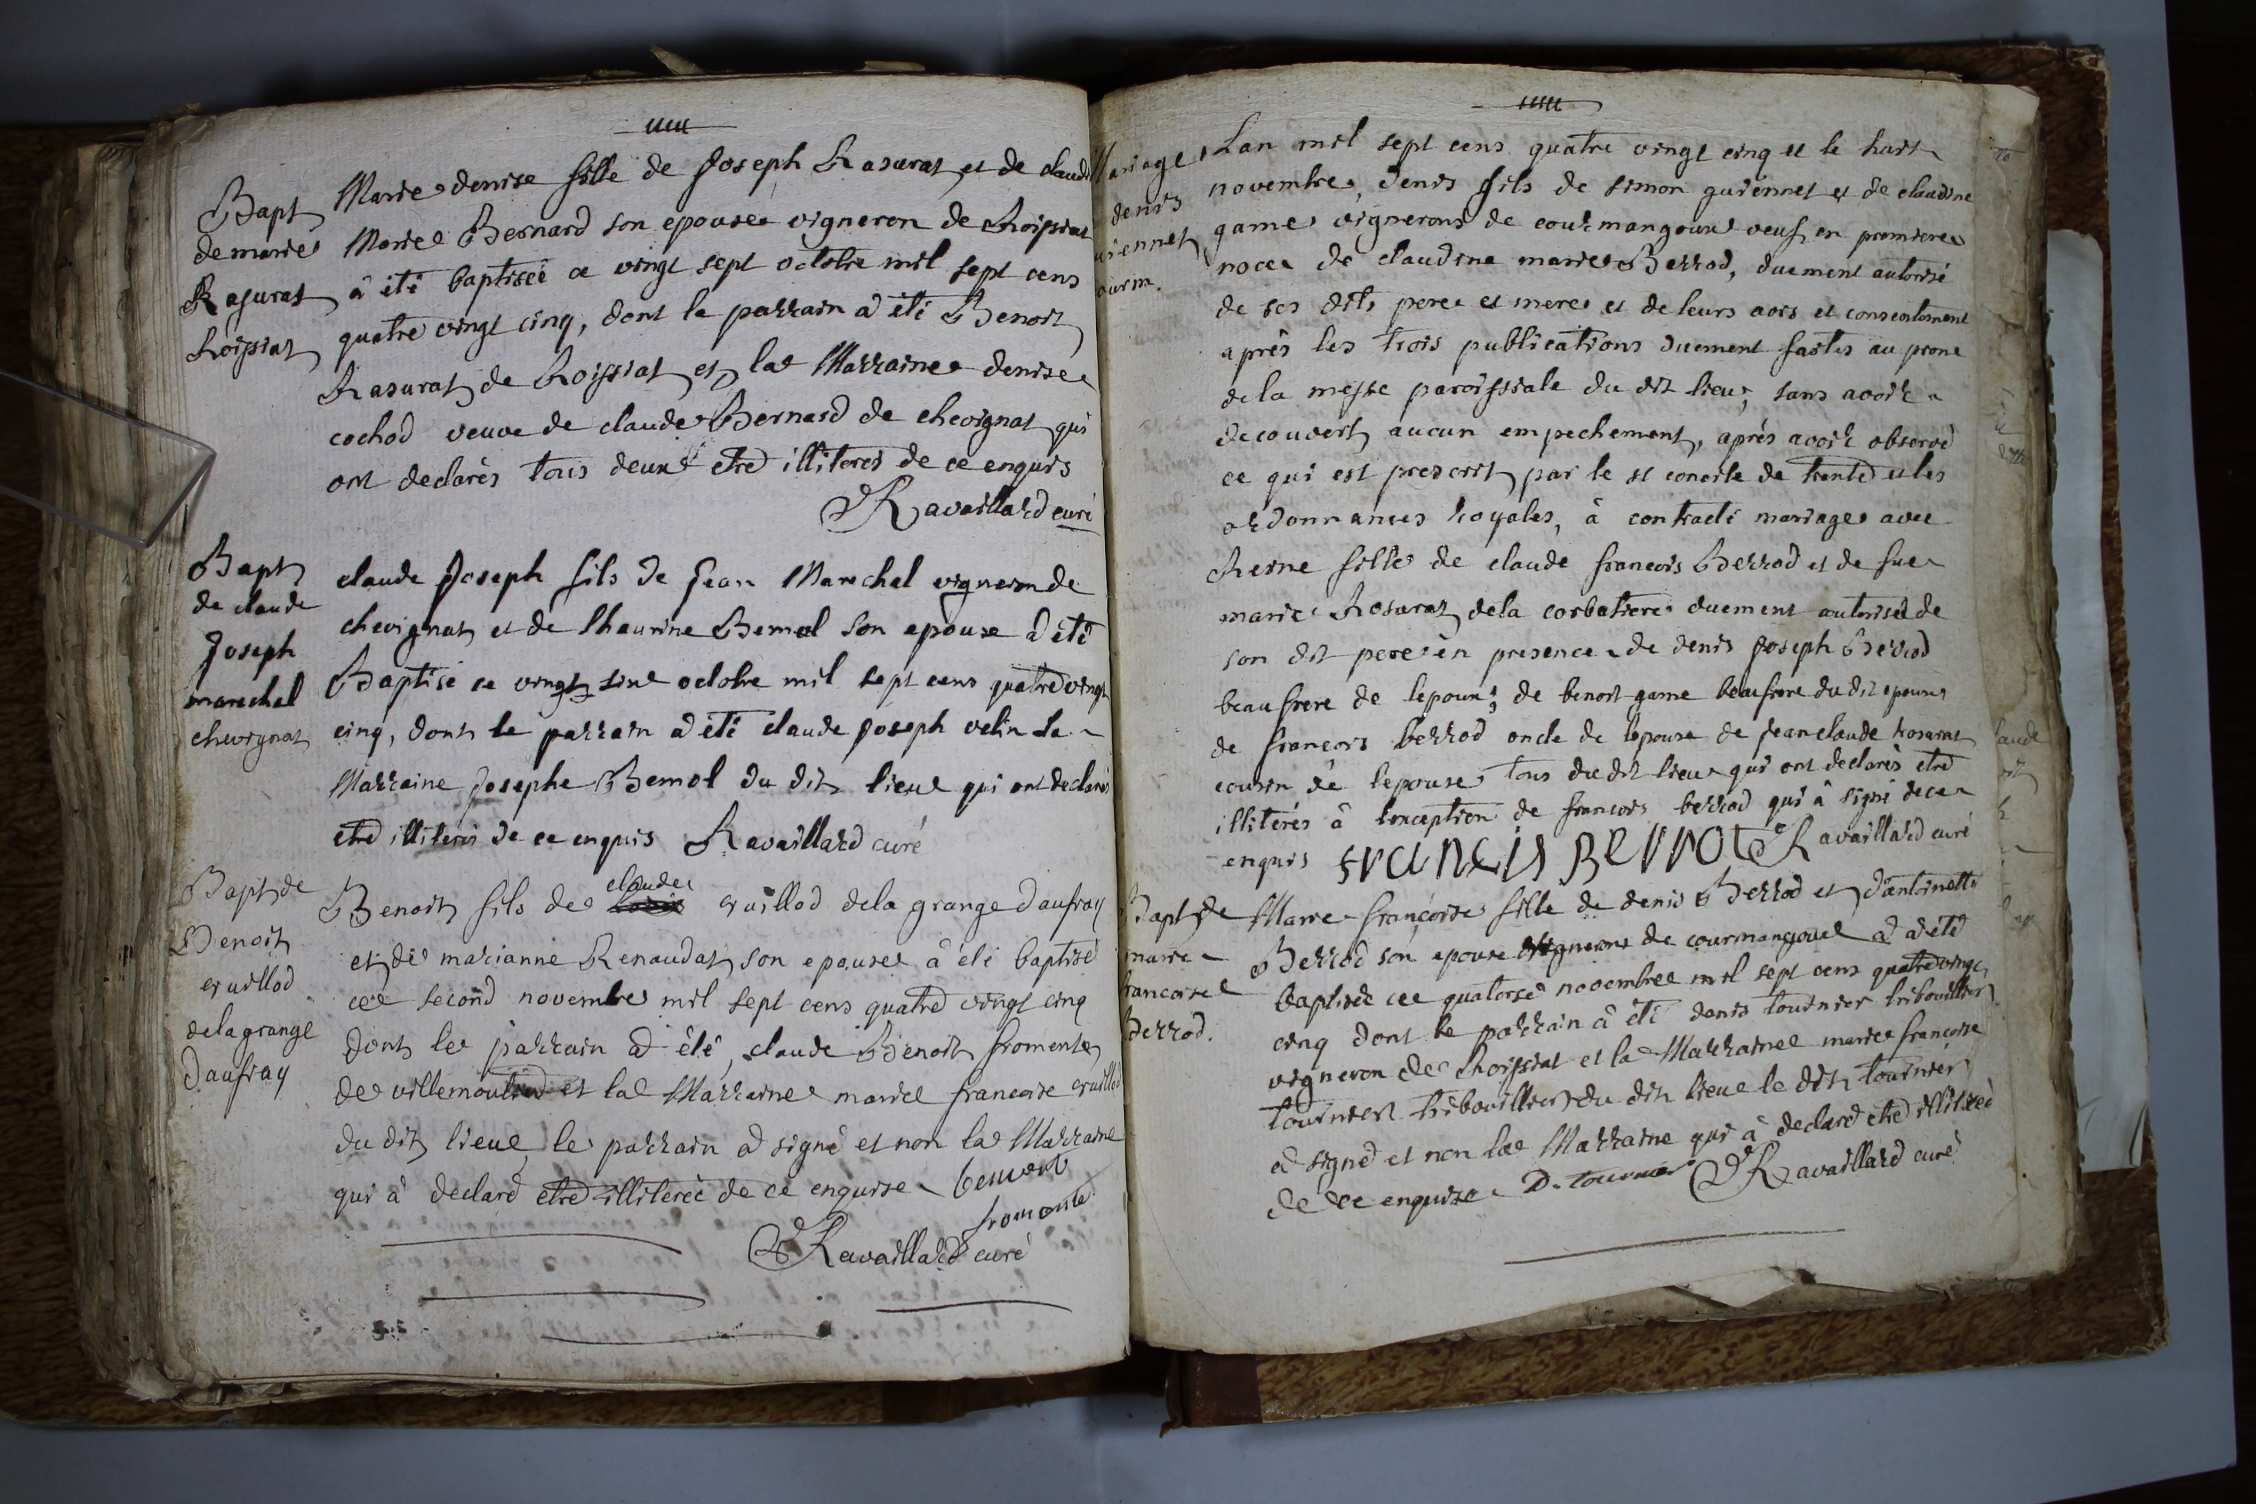 Bapt
de marie
Rasurat
Roissiat
Marie denise fille de Joseph Rasurat et de claude
Marie Bernard son epouse vigneron de Roissiat
à été baptisée ce vingt sept octobre mil sept cens
quatre vingt cinq, dont le parrain a été Benoit
Rasurat de Roissiat et la Marraine denise
cochod veuve de claude Bernard de chevignat qui
ont declarés tous deux etre illiteres de ce enquis
Ravaillard curé
Bapt
de claude
Joseph
marechal
chevignat
claude Joseph fils de Jean Marechal vigneron de
chevignat et de Bemol son epouse a été
Baptisé ce vingt six octobre mil sept cens quatre vingt
cinq, dont le parrain a été claude Joseph velin la
Marraine Josephe Bemol du dit lieu qui ont declarés
etre illiteres de ce enquis Ravaillard curé
Bapt de
Benoit
cruillod
de la grange
Daufray
claude
Benoit fils de cruillod de la grange Daufray
et de marianne Renaudat son epouse à été baptisé
ce second novembre mil sept cens quatre vingt cinq
dont le parrain a été, claude Benoit froment
de villemoutier et la Marraine marie francoise cruillod
du dit lieu le parrain a signé et non la Marraine
qui à declaré etre illiterée de ce enquise benoit
froment
Ravaillard curé
Mariage
denis
uiennet
ourm.
Lan mil sept cens quatre vingt cinq et le huit
novembre, denis fils de simon guiennet et de claudine
game vignerons de courmangoux veuf en premiere
noce de claudine marie Berrod, duement autorisé
de ses dits pere et mere et de leurs avis et consentement
après les trois publications duement faites au prone
de la messe paroissiale du dit lieu, sans avoir
decouvert aucun empechement, après avoir observé
ce qui est prescrit par le st concile de trente et les
ordonnances royales, à contracté mariage avec
Reine fille de claude francois Berrod et de fue
marie Rosurat de la corbatiere duement autorisée de
son dit pere en presence de denis Joseph Berrod
beaufrere de lepoux, de benoit game beaufrere du dit epoux
de francois berrod oncle de lepouse de Jean claude rosurat
cousin de lepouse tous du dit lieu qui ont declarés etre
illiterés à lexception de francois berrod qui à signé de ce
enquis francis Berrot Ravaillard curé
Bapt de
marie
francoise
berrod.
Marie françoise fille de denis Berrod et dantoinette
Berrod son epouse vignerons de courmangoux a été
baptisée ce quatorse novembre mil sept cens quatre vingt
cinq dont le parrain à été denis tournier tribouillier
vigneron de Roissiat et la Marraine marie francoise
tournier tribouillier du dit lieu le dit tournier
a signé et non la Marraine qui à declaré etre illiterée
de ce enquise D. tournier Ravaillard curé